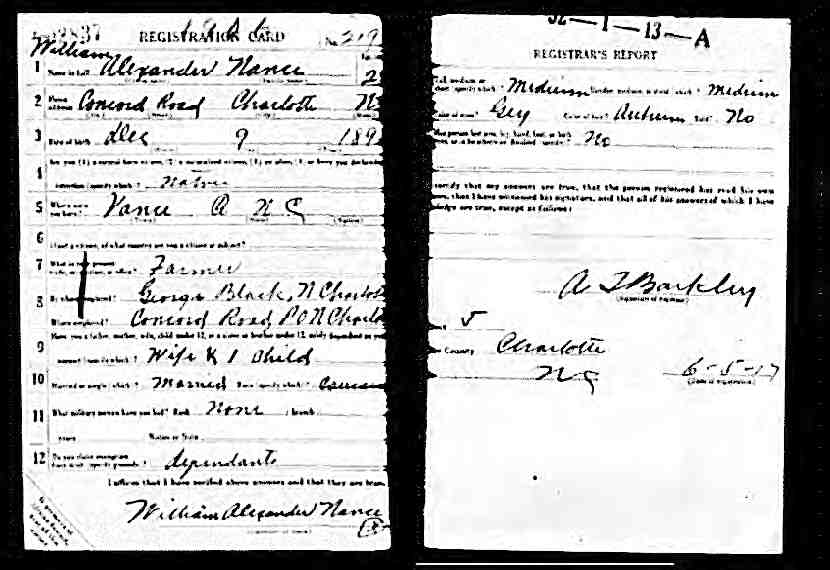 REGISTRATION CARD
William
1 Name in full Alexander Nance
2 Home address Concord Road Charlotte N
3 Date of birth Dec 9 189
4 intention (specify which)? Native
5 Where were you born? Vance N C
6
7 What is your present Farmer
8 By whom employed? George Black, N Charlot
Where employed? Concord Road PO N Charlo
9 Have you a father, mother, wife, child under 12, or a sister or brother under 12, solely dependent on you
support (specify which)? Wife & 1 Child
10 Married or single (which)? Married Race (specify which)? Caucas
11 What military service have you had? Rank None ; branch
years Nation or State
12 Do you claim exemption from draft (specify grounds)? dependants
I affirm that I have verified above answers and that they are true.
William Alexander Nance
32—1—13—A
REGISTRAR'S REPORT
Tall, medium, or short (specify which)? Medium Slender, medium, or stout (which)? Medium
Color of eyes? Grey Color of hair? Auburn Bald? No
Has person lost arm, leg, hand, foot, or both No
certify that my answers are true, that the person registered has read his own
that I have witnessed his signature, and that all of his answers of which I have
knowledge are true, except as follows:
(Signature of registrar)
5
County Charlotte
NC 6-5-17
(Date of registration)